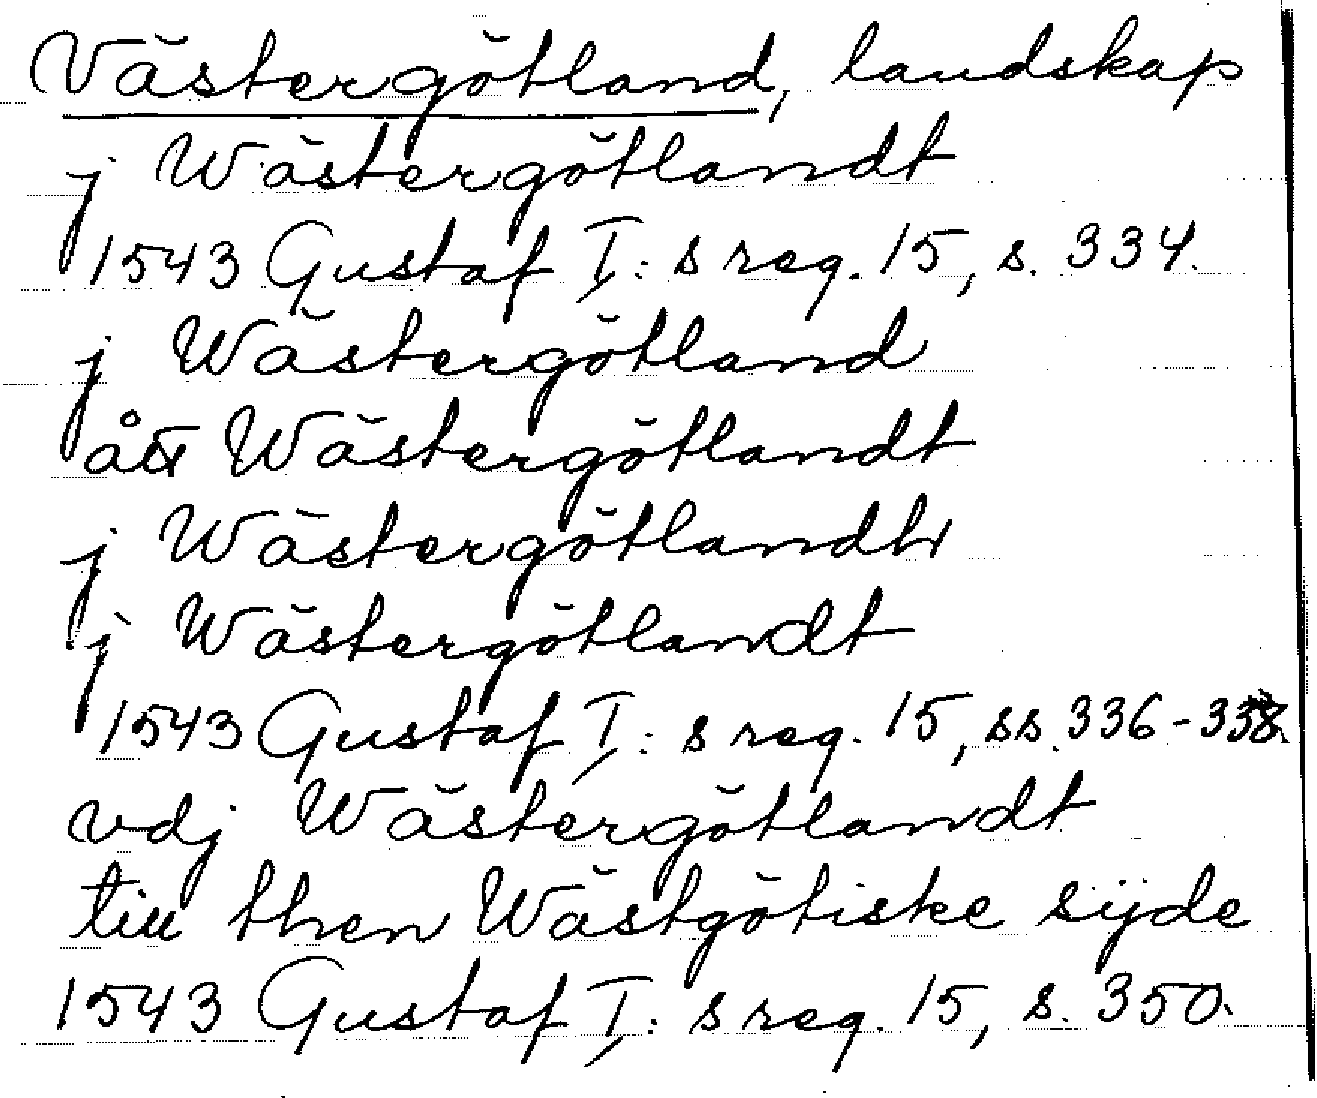 Västergötland, landskap
j Wästergötlandt
1543 Gustaf I: s reg. 15, s. 334.
j Wästergötland
ått Wästergötlandt
j Wästergötlandh
j Wästergötlandt
1543 Gustaf I: s reg. 15, ss. 336-338.
vdj Wästergötlandt
till then Wästgötiske sijde
1543 Gustaf I: s reg. 15, s. 350.